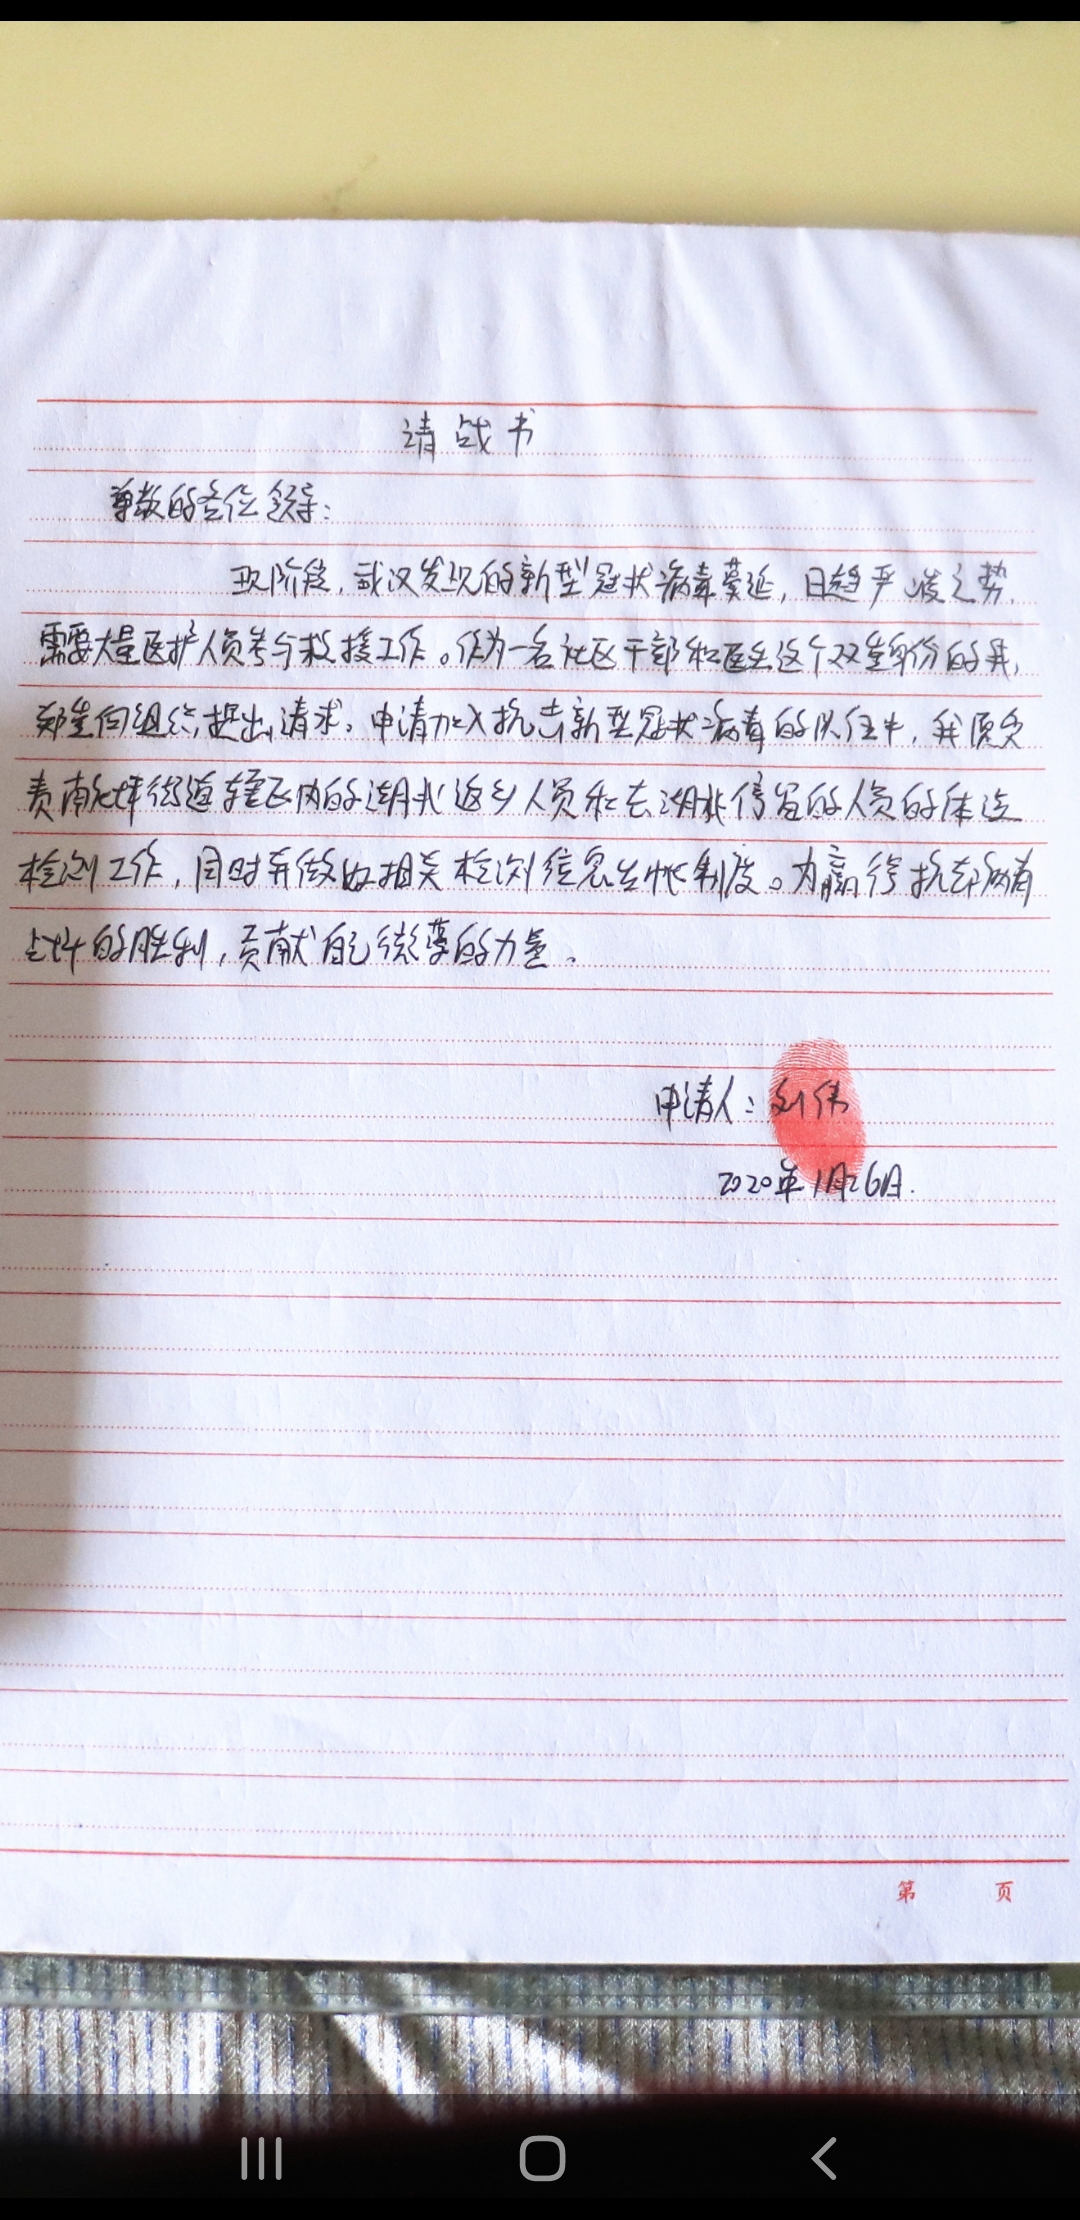 请战书
尊敬的各位领导:
现阶段,武汉发现的新型冠状病毒蔓延,日趋严峻之势.
需要大量医护人员参与救援工作。作为一名社区干部和医生这个双重身份的我,
郑重向组织提出请求,申请加入抗击新型冠状病毒的队伍中,我愿负
责南坪街道辖区内的湖北返乡人员和去湖北停留的人员的体温
检测工作,同时并做好相关检测信息台帐制度。为赢得抗击病毒
战斗的胜利,贡献自己微薄的力量。
申请人:刘伟
2020年1月26日.
第 页